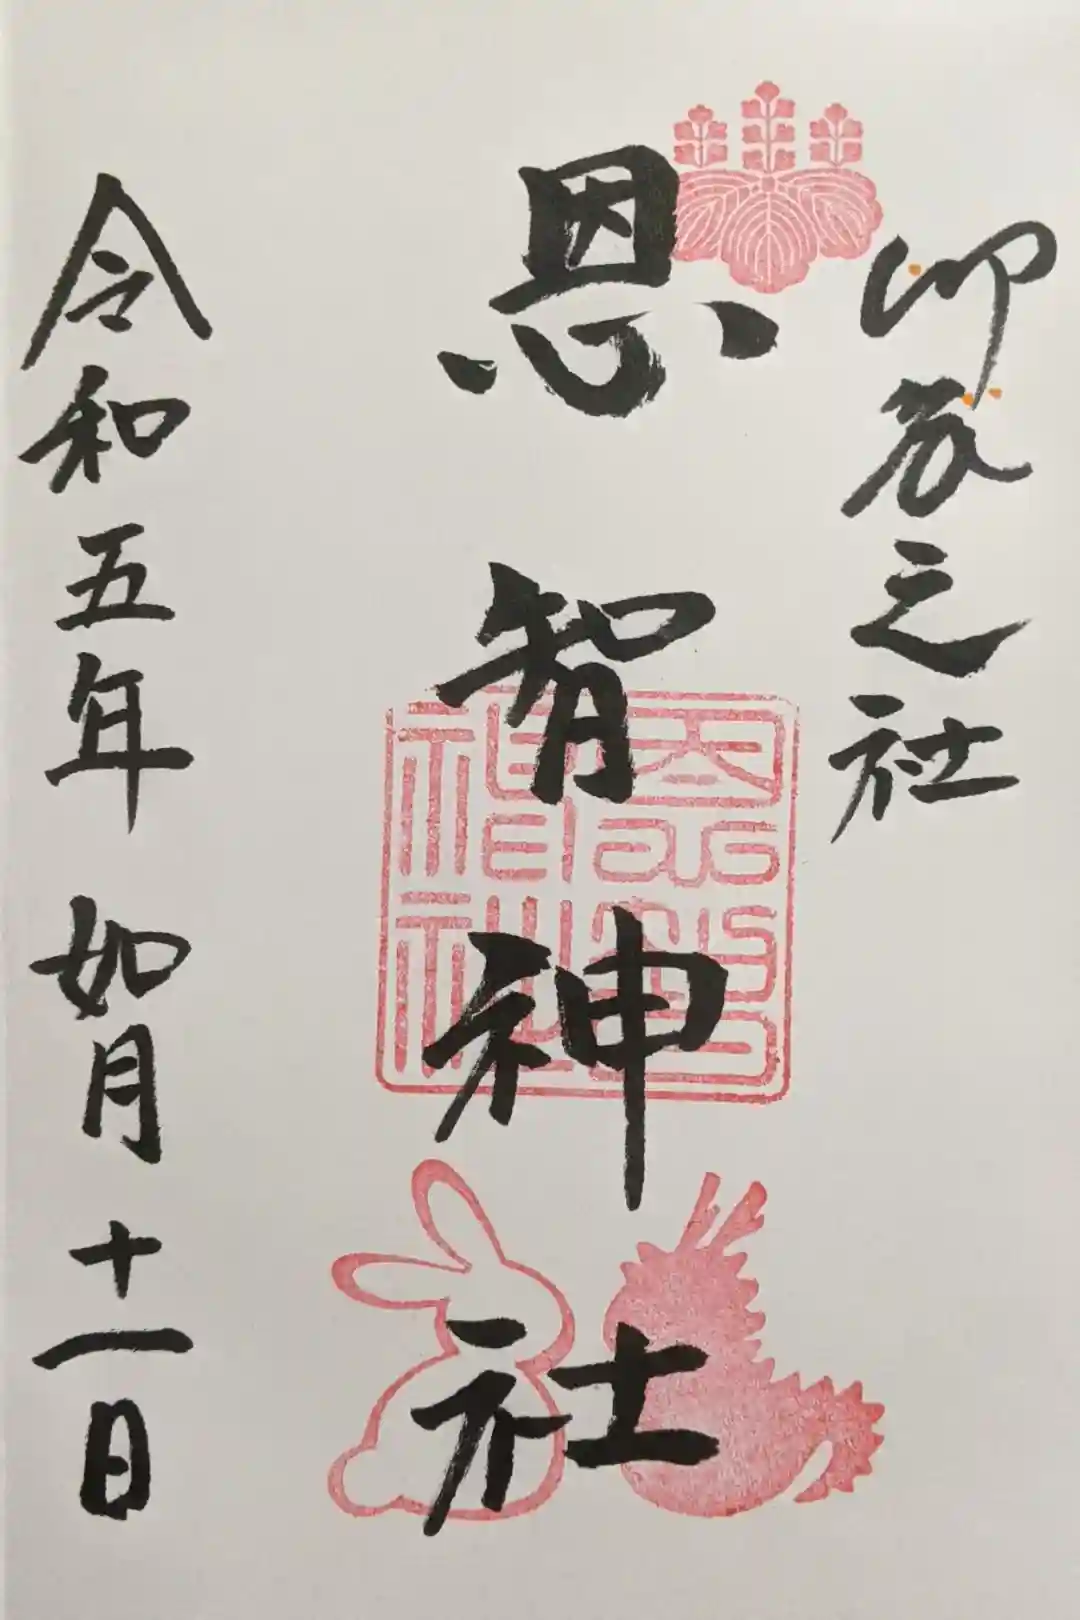 卯辰之社
恩智神社
令和五年如月十一日
恩智神社